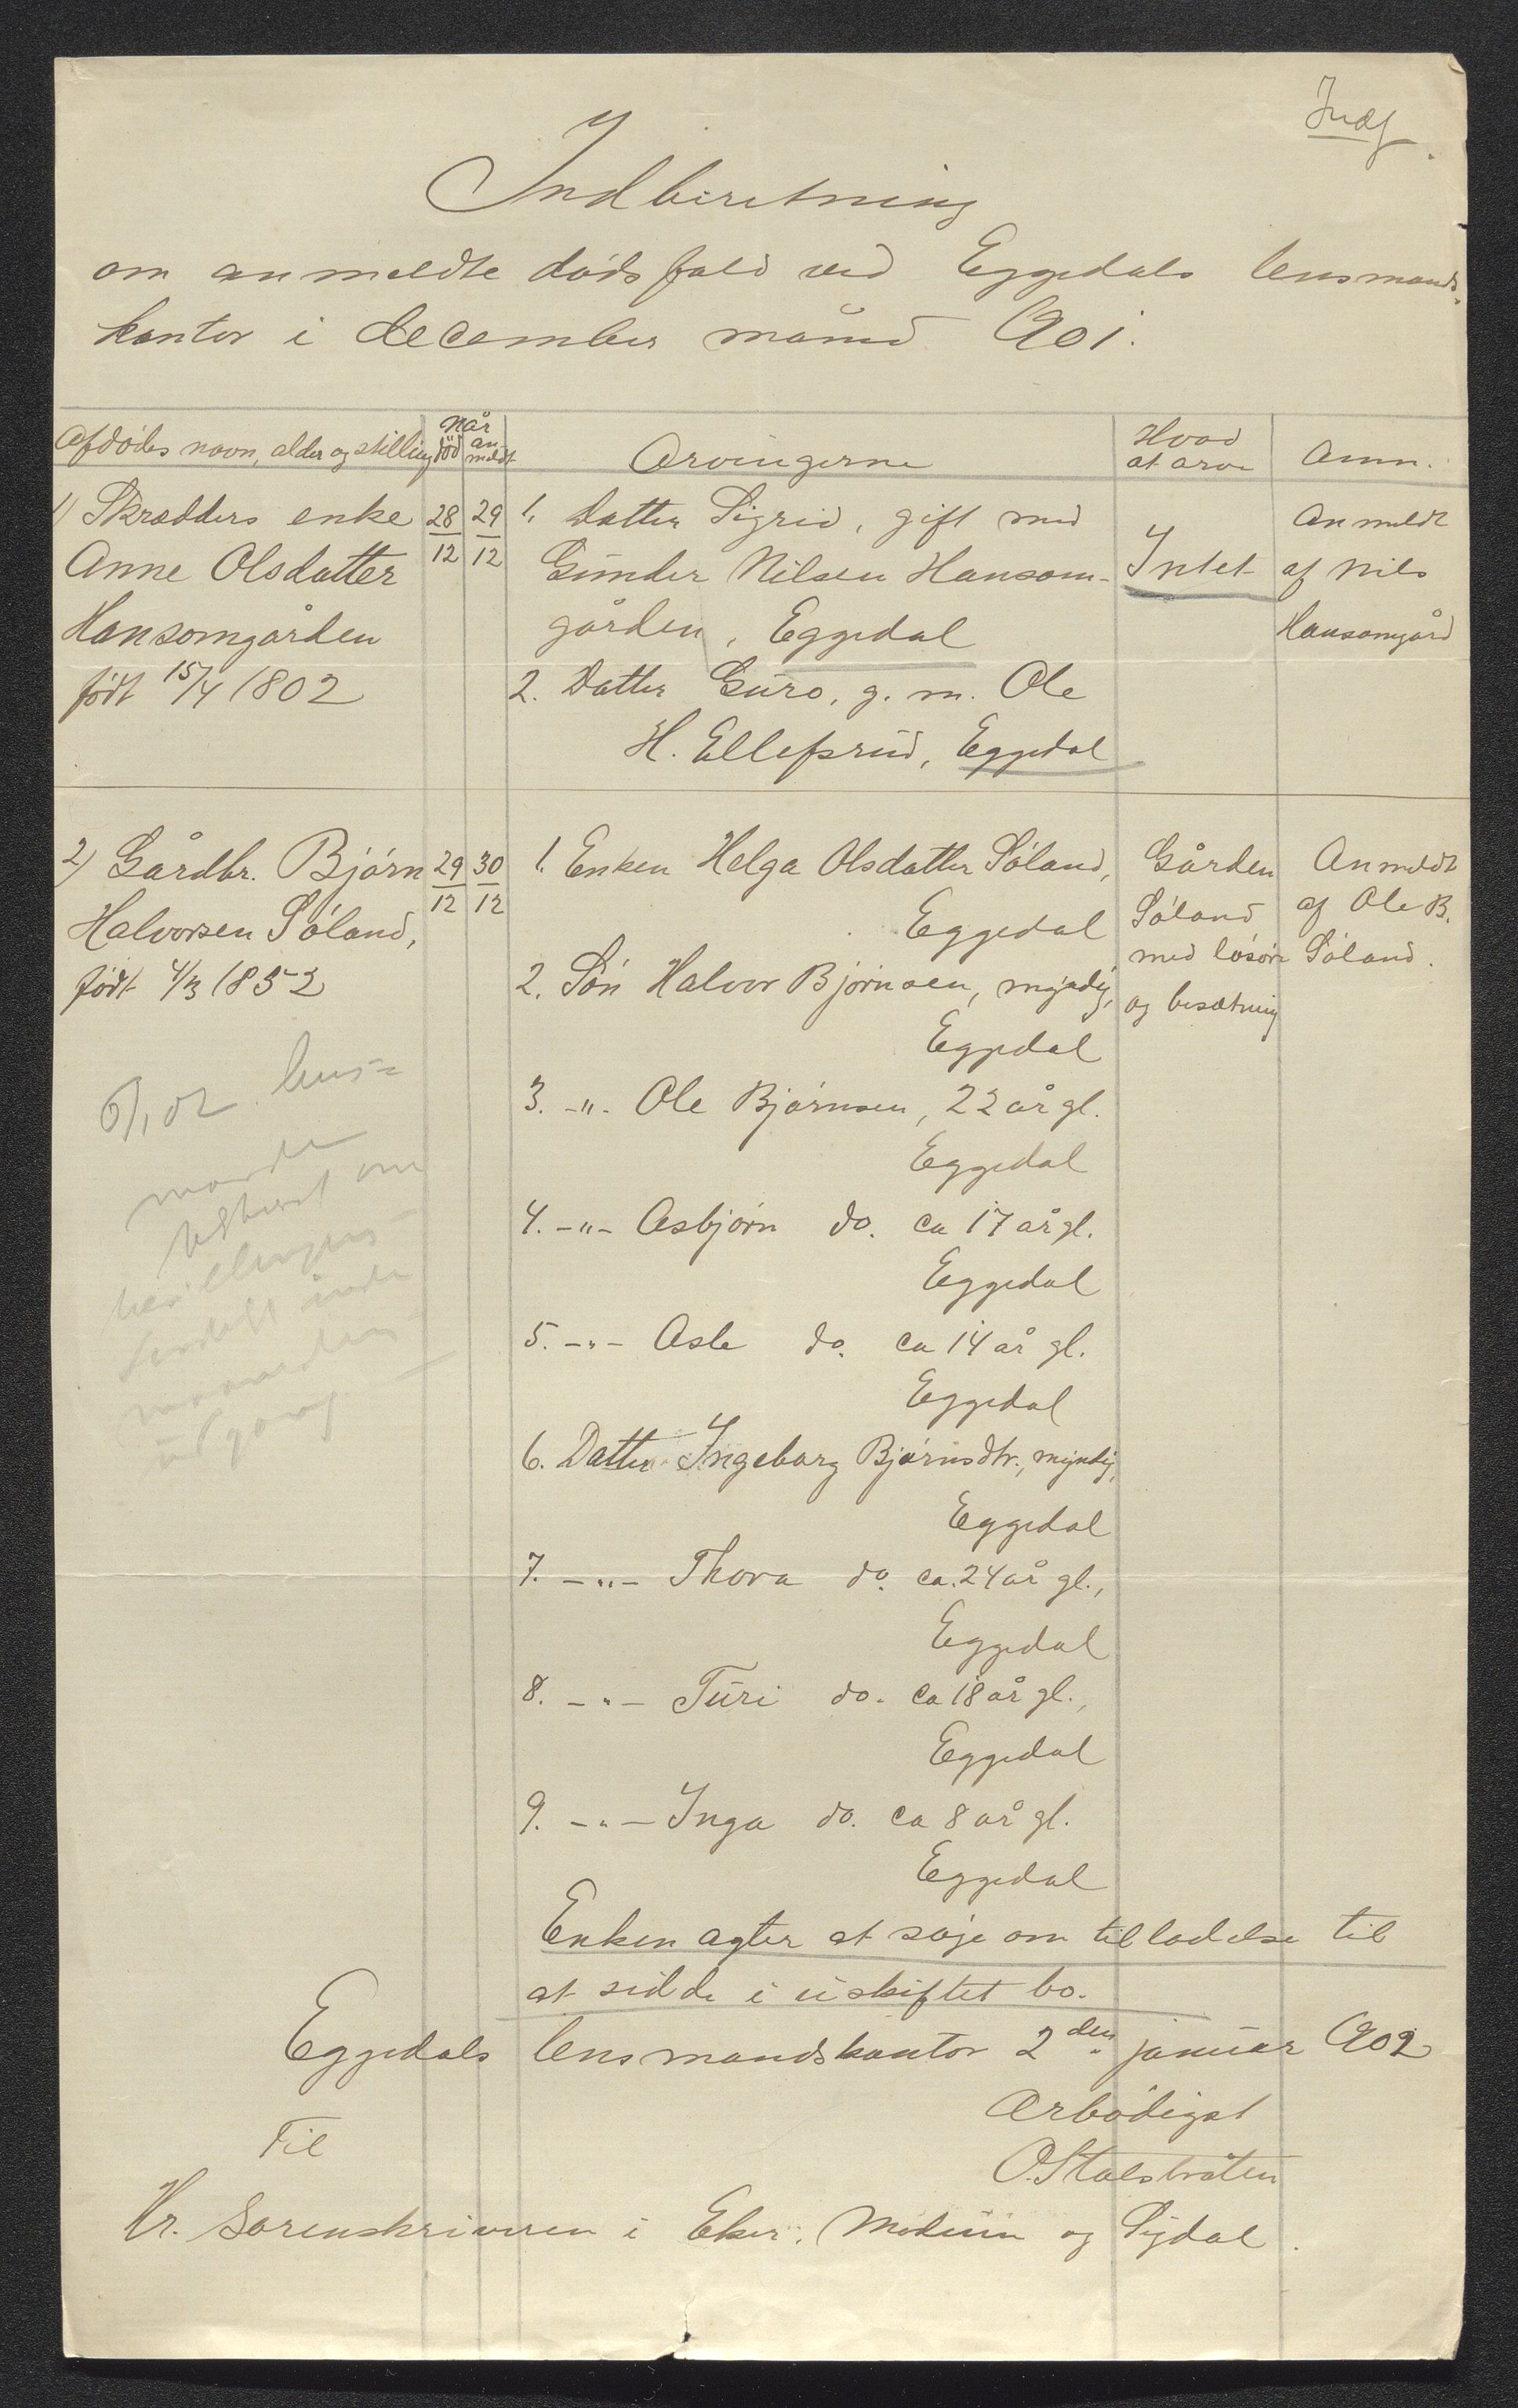 Indf.
Indberetning
om anmeldte dødsfald ved Eggedals lensmands-
kontor i december måned 1901.
Afdødes navn, alder og stilling
Når
død
an-
meldt
Arvingerne
Hvad
at arve
Anm.
1) Skrædders enke
Anne Olsdatter
Hansomgården
født 15/4 1802
28/12
29/12
1. Datter Sigrid, gift med
Gunder Nilsen Hansom-
gården, Eggedal
2. Datter Guro, g. m. Ole
H. Ellefsrud, Eggedal
Intet
Anmeldt
af Nils
Hansomgård
2) Gårdbr. Bjørn
Halvorsen Søland,
født 4/3 1852
29/12
30/12
1. Enken Helga Olsdatter Søland,
Eggedal
2. Søn Halvor Bjørnsen, myndig,
Eggedal
3. -"- Ole Bjørnsen, 22 år gl.
Eggedal
4. -"- Asbjørn do. ca 17 år gl.
Eggedal
5. -"- Asle do. ca 14 år gl.
Eggedal
6. Datter Ingeborg Bjørnsdtr., myndig,
Eggedal
7. -"- Thora do. ca. 24 år gl.,
Eggedal
8. -"- Turi do. ca 18 år gl.,
Eggedal
9. -"- Inga do. ca 8 år gl.
Eggedal
Gården
Søland
med løsøre
og besætning
Anmeldt
af Ole B.
Søland.
6/1 02 lens=
manden
om
bevillingens
inden
maanedens
udgang
Enken agter at søge om tilladelse til
at sidde i uskiftet bo.
Eggedals lensmandskontor 2den januar 1902
Ærbødigst
O. Stalsbråten
Til
Hr. Sorenskriveren i Eker, Modum og Sigdal.